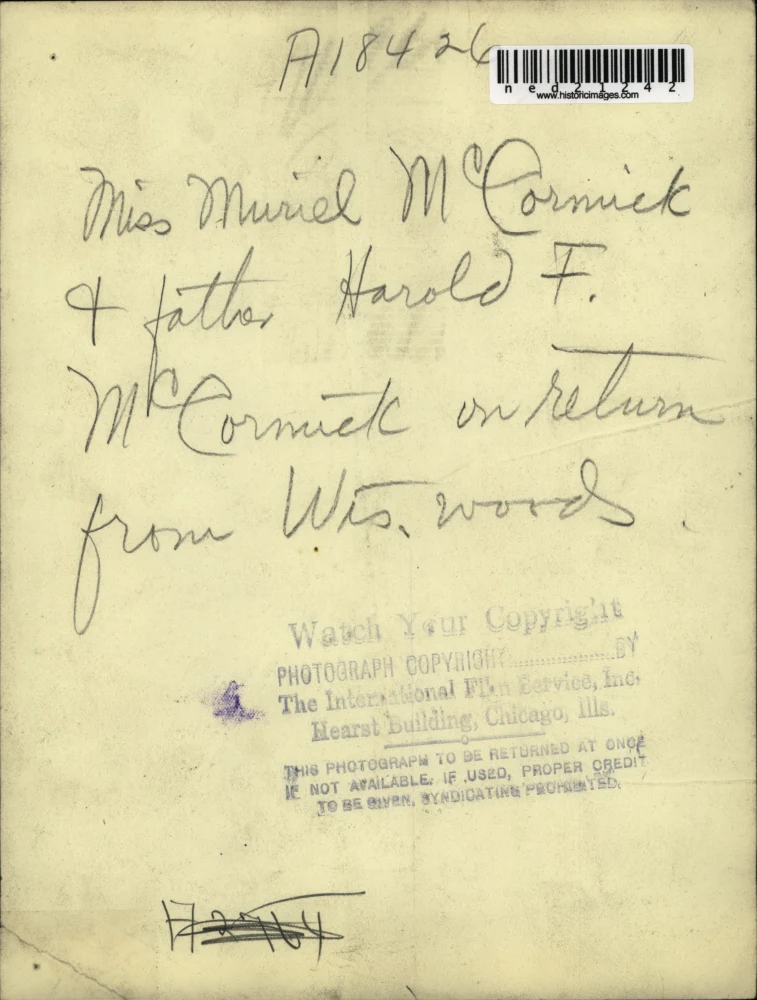 A18426
ned21242
www.historicimages.com
Miss Muriel McCormick
& father Harold F.
McCormick on return
from Wis. woods.
Watch Your Copyright
PHOTOGRAPH COPYRIGHT..................BY
The International Film Service, Inc.
Hearst Building, Chicago, Ills.
THIS PHOTOGRAPH TO BE RETURNED AT ONCE
IF NOT AVAILABLE. IF USED, PROPER CREDIT
TO BE GIVEN, SYNDICATING PROHIBITED.